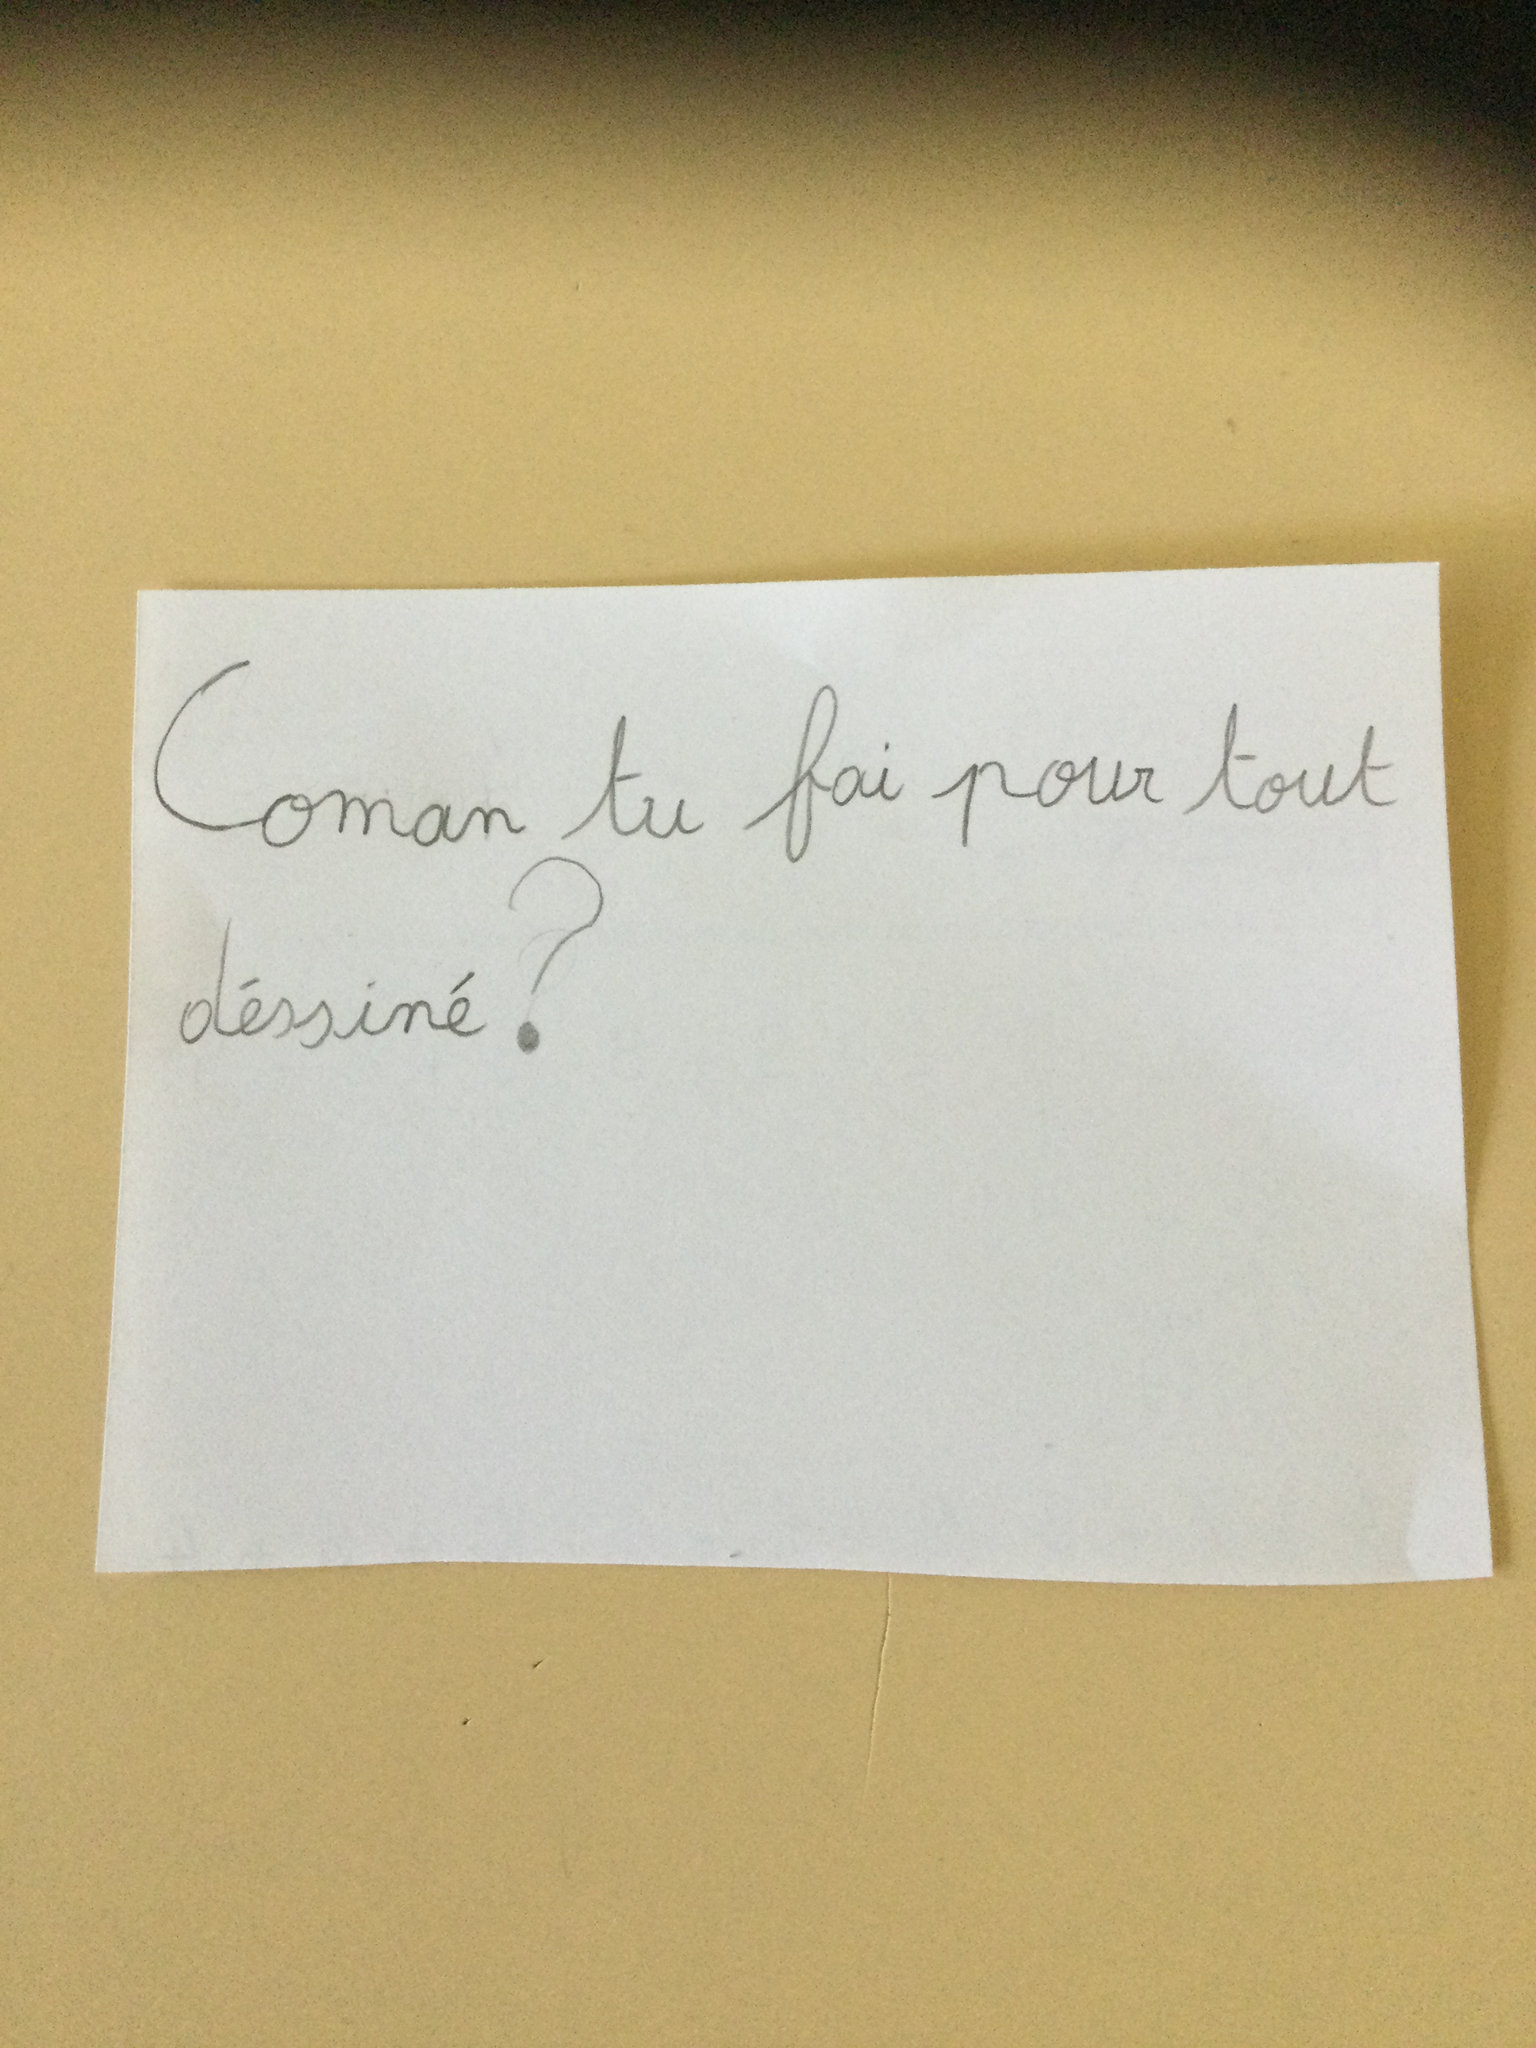 Coman tu fai pour tout
déssiné?